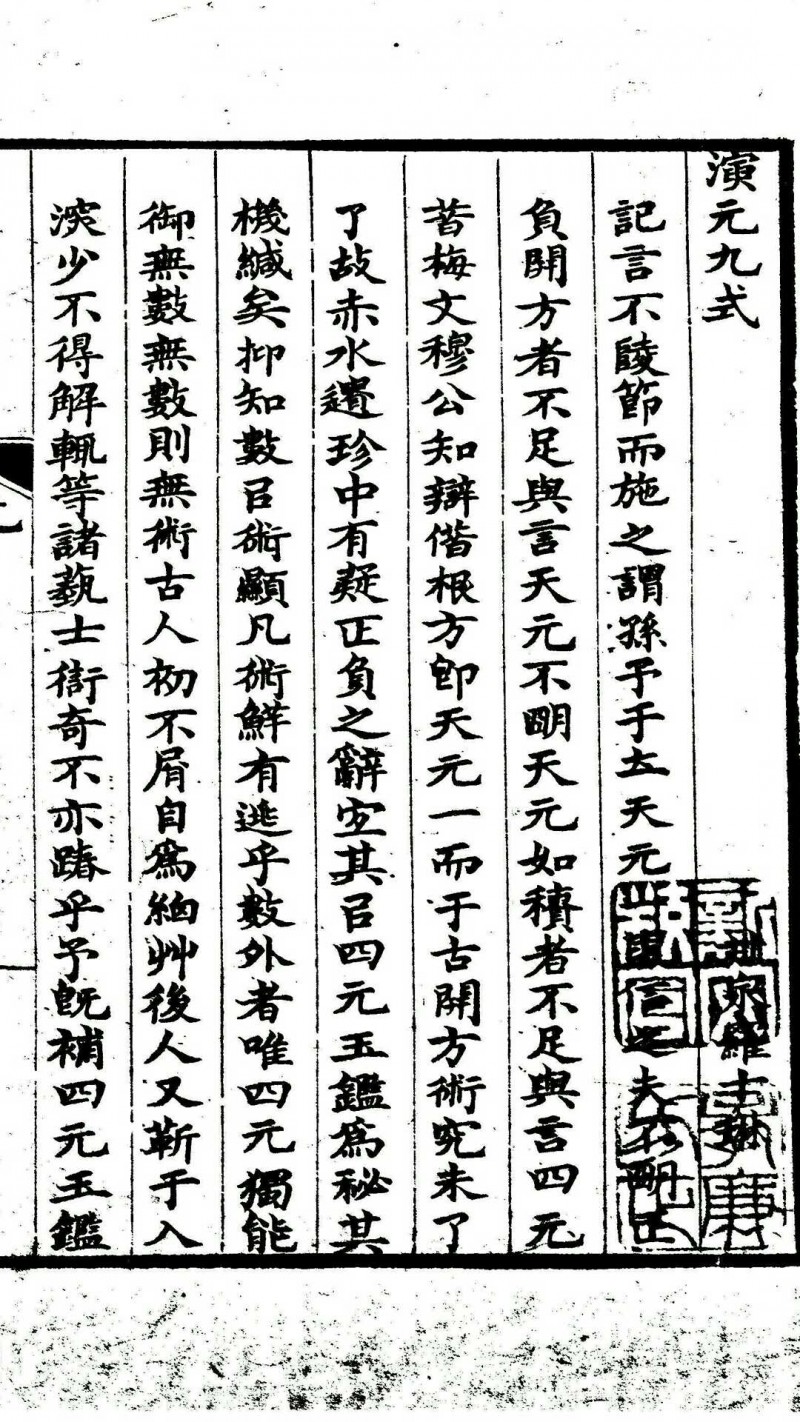 演元九式 羅士琳
記言不陵節而施之謂孫予于立天元 信之夫不明正
負開方者不足與言天元不明天元如積者不足與言四元
昔梅文穆公知辯借根方即天元一而于古開方術究未了
了故赤水遺珍中有疑正負之辭宐其㠯四元玉鑑為秘其
機緘矣抑知數㠯術顯凡術鮮有逃乎數外者唯四元獨能
御無數無數則無術古人初不屑自為細艸後人又靳于入
深少不得解輒等諸蓺士衒奇不亦踳乎予旣補四元玉鑑